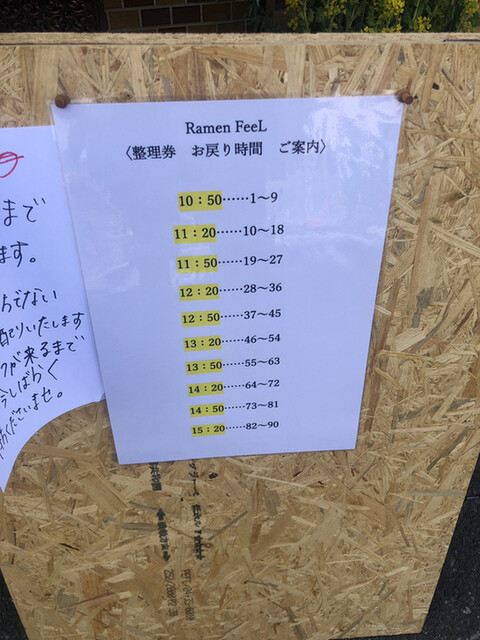 Ramen FeeL
〈整理券 お戻り時間 ご案内〉
10：50……1～9
11：20……10～18
11：50……19～27
12：20……28～36
12：50……37～45
13：20……46～54
13：50……55～63
14：20……64～72
14：50……73～81
15：20……82～90
まで
ます。
でない
配りいたします
が来るまで
今しばらく
くださいませ。